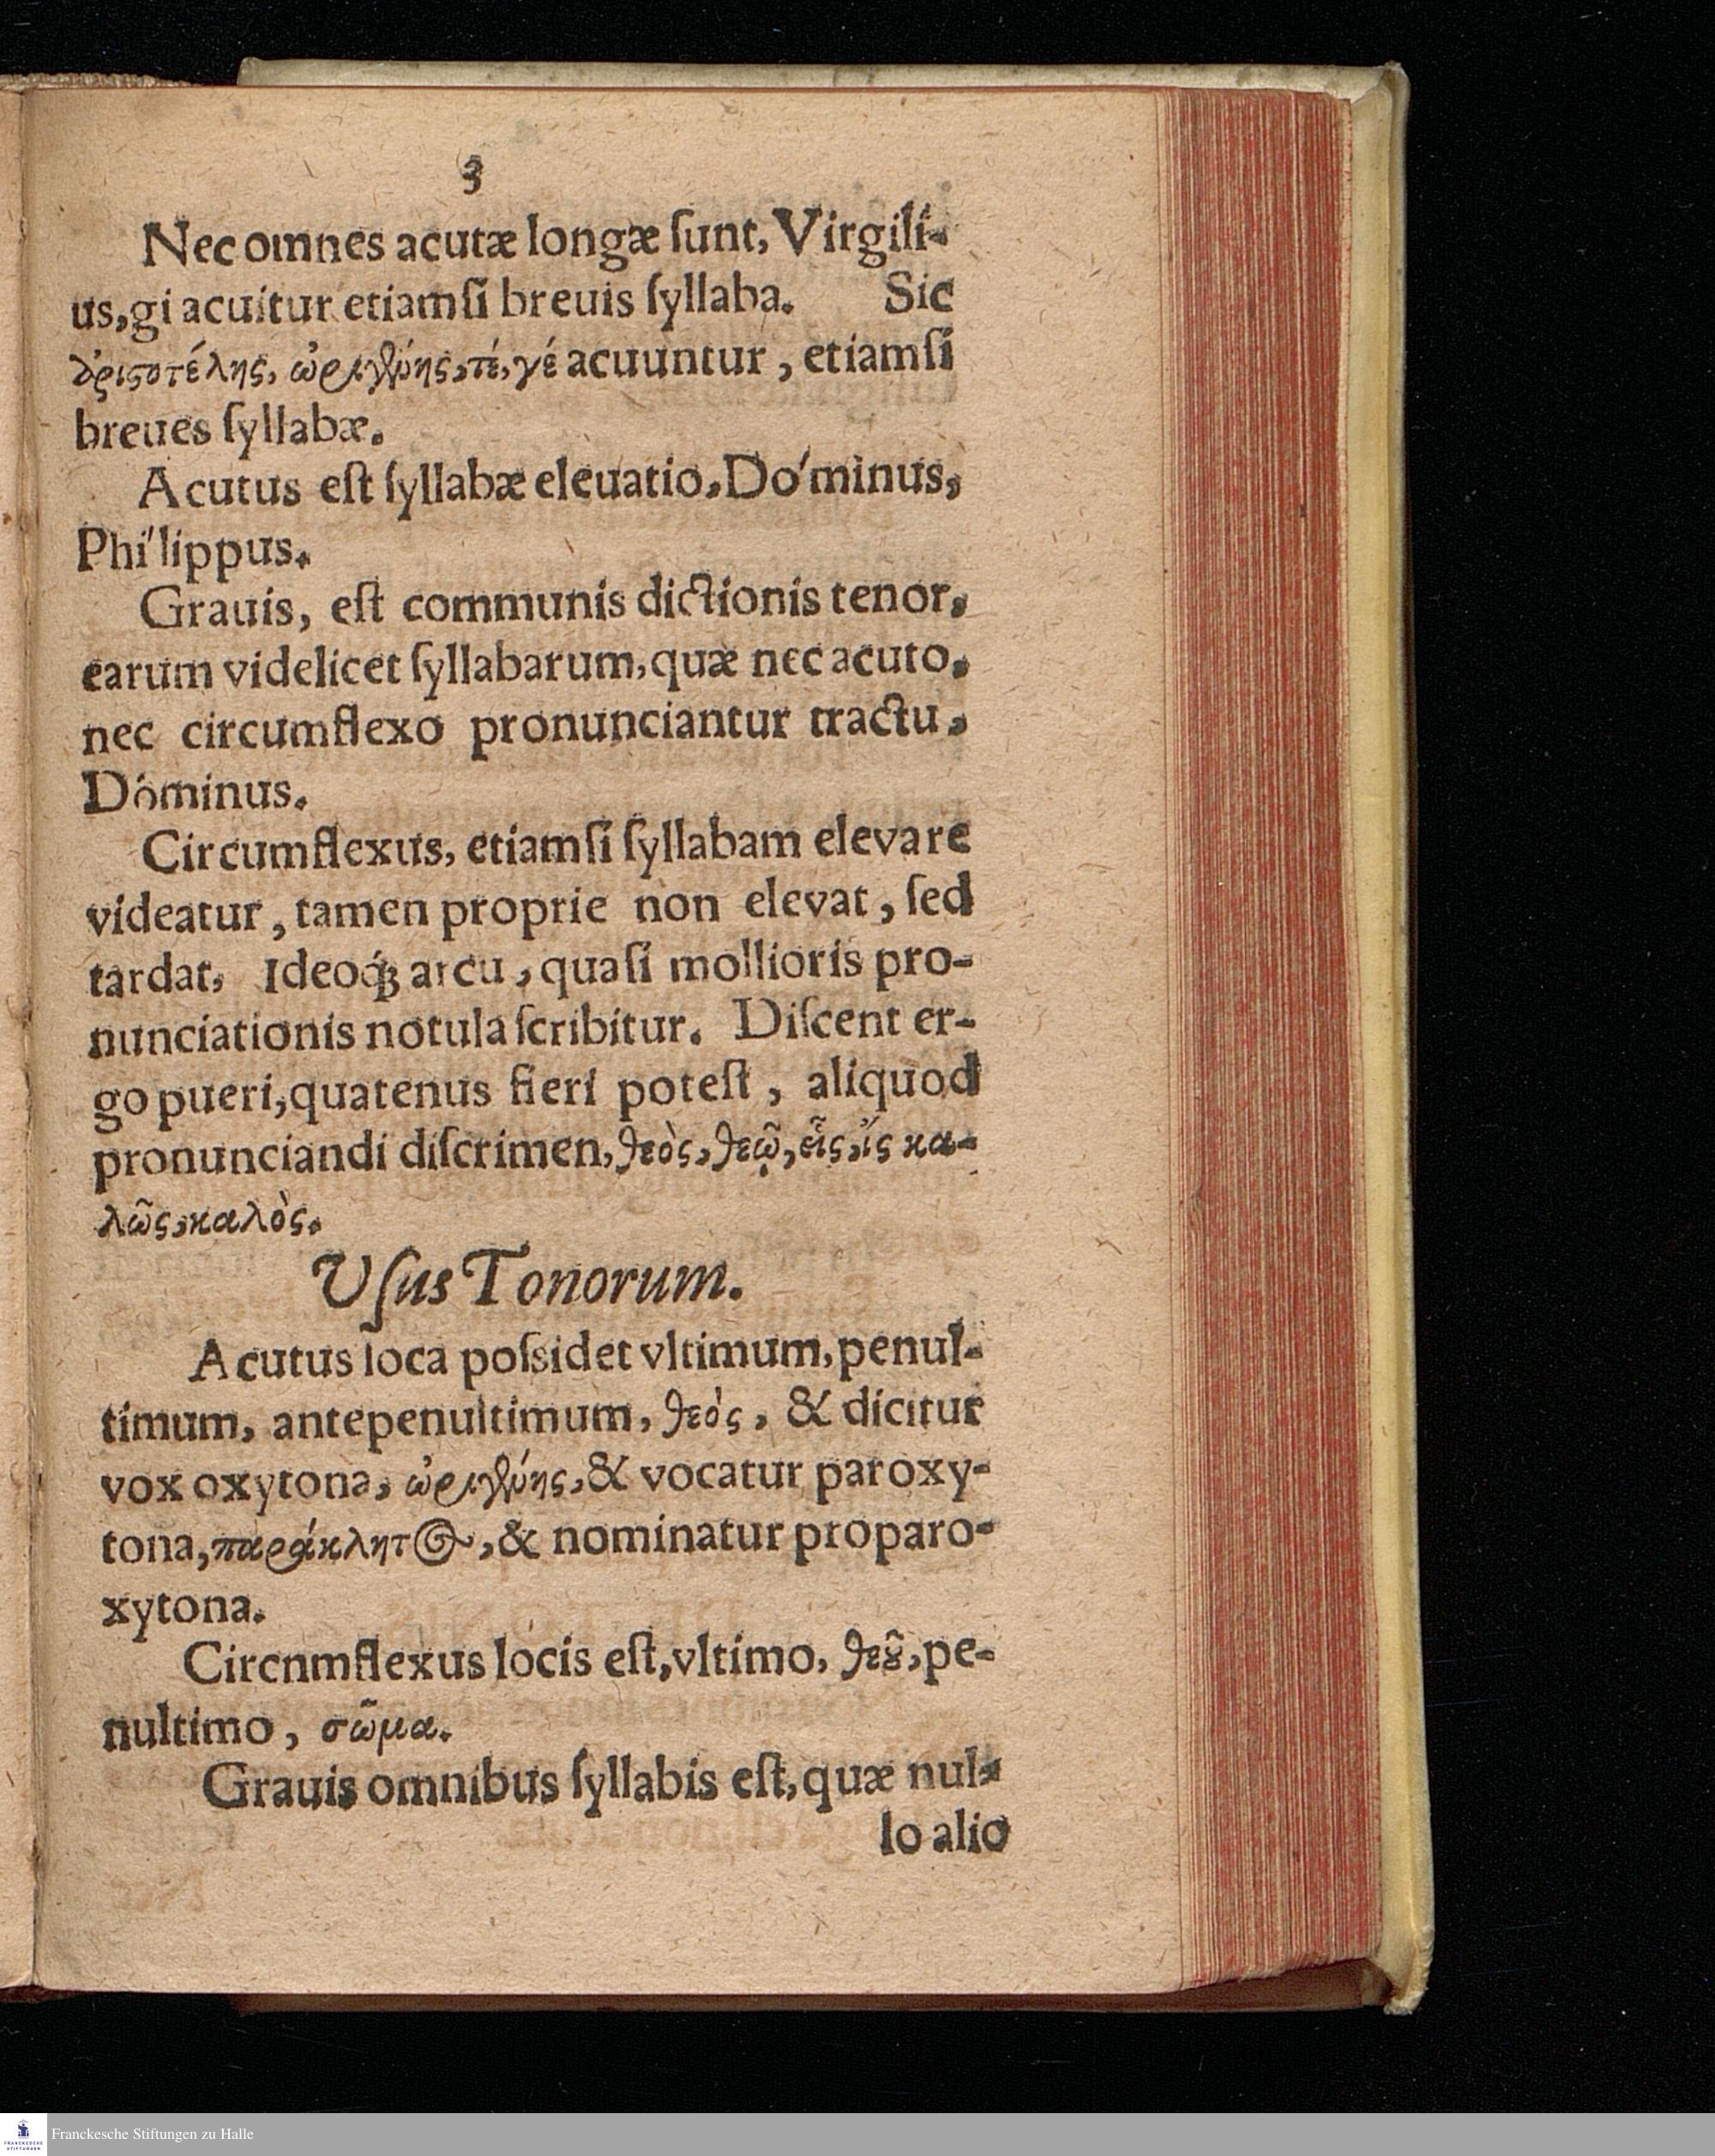 3
Nec omnes acutæ longæ ſunt, Virgili-
us, gi acuitur etiamſi breuis ſyllaba. Sic
ἀριστοτέλης, ὠριγένης, τέ, γέ acuuntur, etiamſi
breues ſyllabæ.
Acutus eſt ſyllabæ eleuatio, Do'minus,
Phi'lippus.
Grauis, eſt communis dictionis tenor,
earum videlicet ſyllabarum, quæ nec acuto,
nec circumflexo pronunciantur tractu,
Dóminus.
Circumflexus, etiamſi ſyllabam elevare
videatur, tamen proprie non elevat, ſed
tardat, Ideoq́; arcu, quaſi mollioris pro-
nunciationis notula ſcribitur. Diſcent er-
go pueri, quatenus fieri poteſt, aliquod
pronunciandi diſcrimen, θεὸς, θεῷ, εἷς, ἴς κα-
λῶς, καλὸς.
Uſus Tonorum.
Acutus loca poſsidet vltimum, penul-
timum, antepenultimum, θεός, & dicitur
vox oxytona, ὠριγένης, & vocatur paroxy-
tona, παράκλητος, & nominatur proparo-
xytona.
Circnmflexus locis eſt, vltimo, θεȣ͂, pe-
nultimo, σῶμα.
Grauis omnibus ſyllabis eſt, quæ nul-
lo alio
Franckesche Stiftungen zu Halle
FRANCKESCHE
STIFTUNGEN